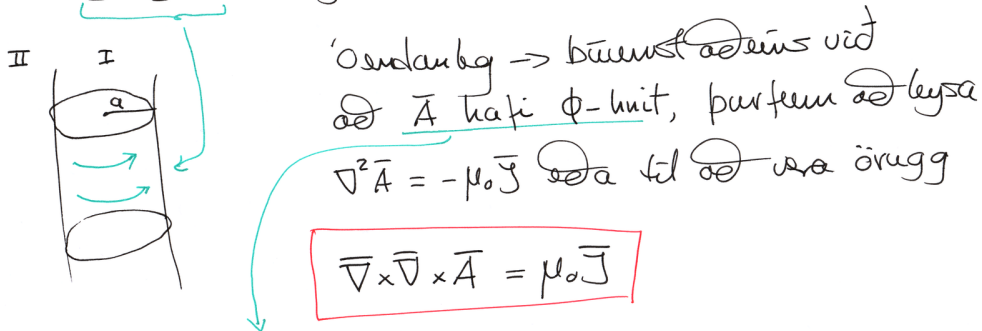 II I
a
Óendanleg -> búumst aðeins við
að Ā hafi φ-hnit, þurfum að leysa
∇²Ā = -μ₀J̄ eða til að vera örugg
∇̄×∇̄×Ā = μ₀J̄